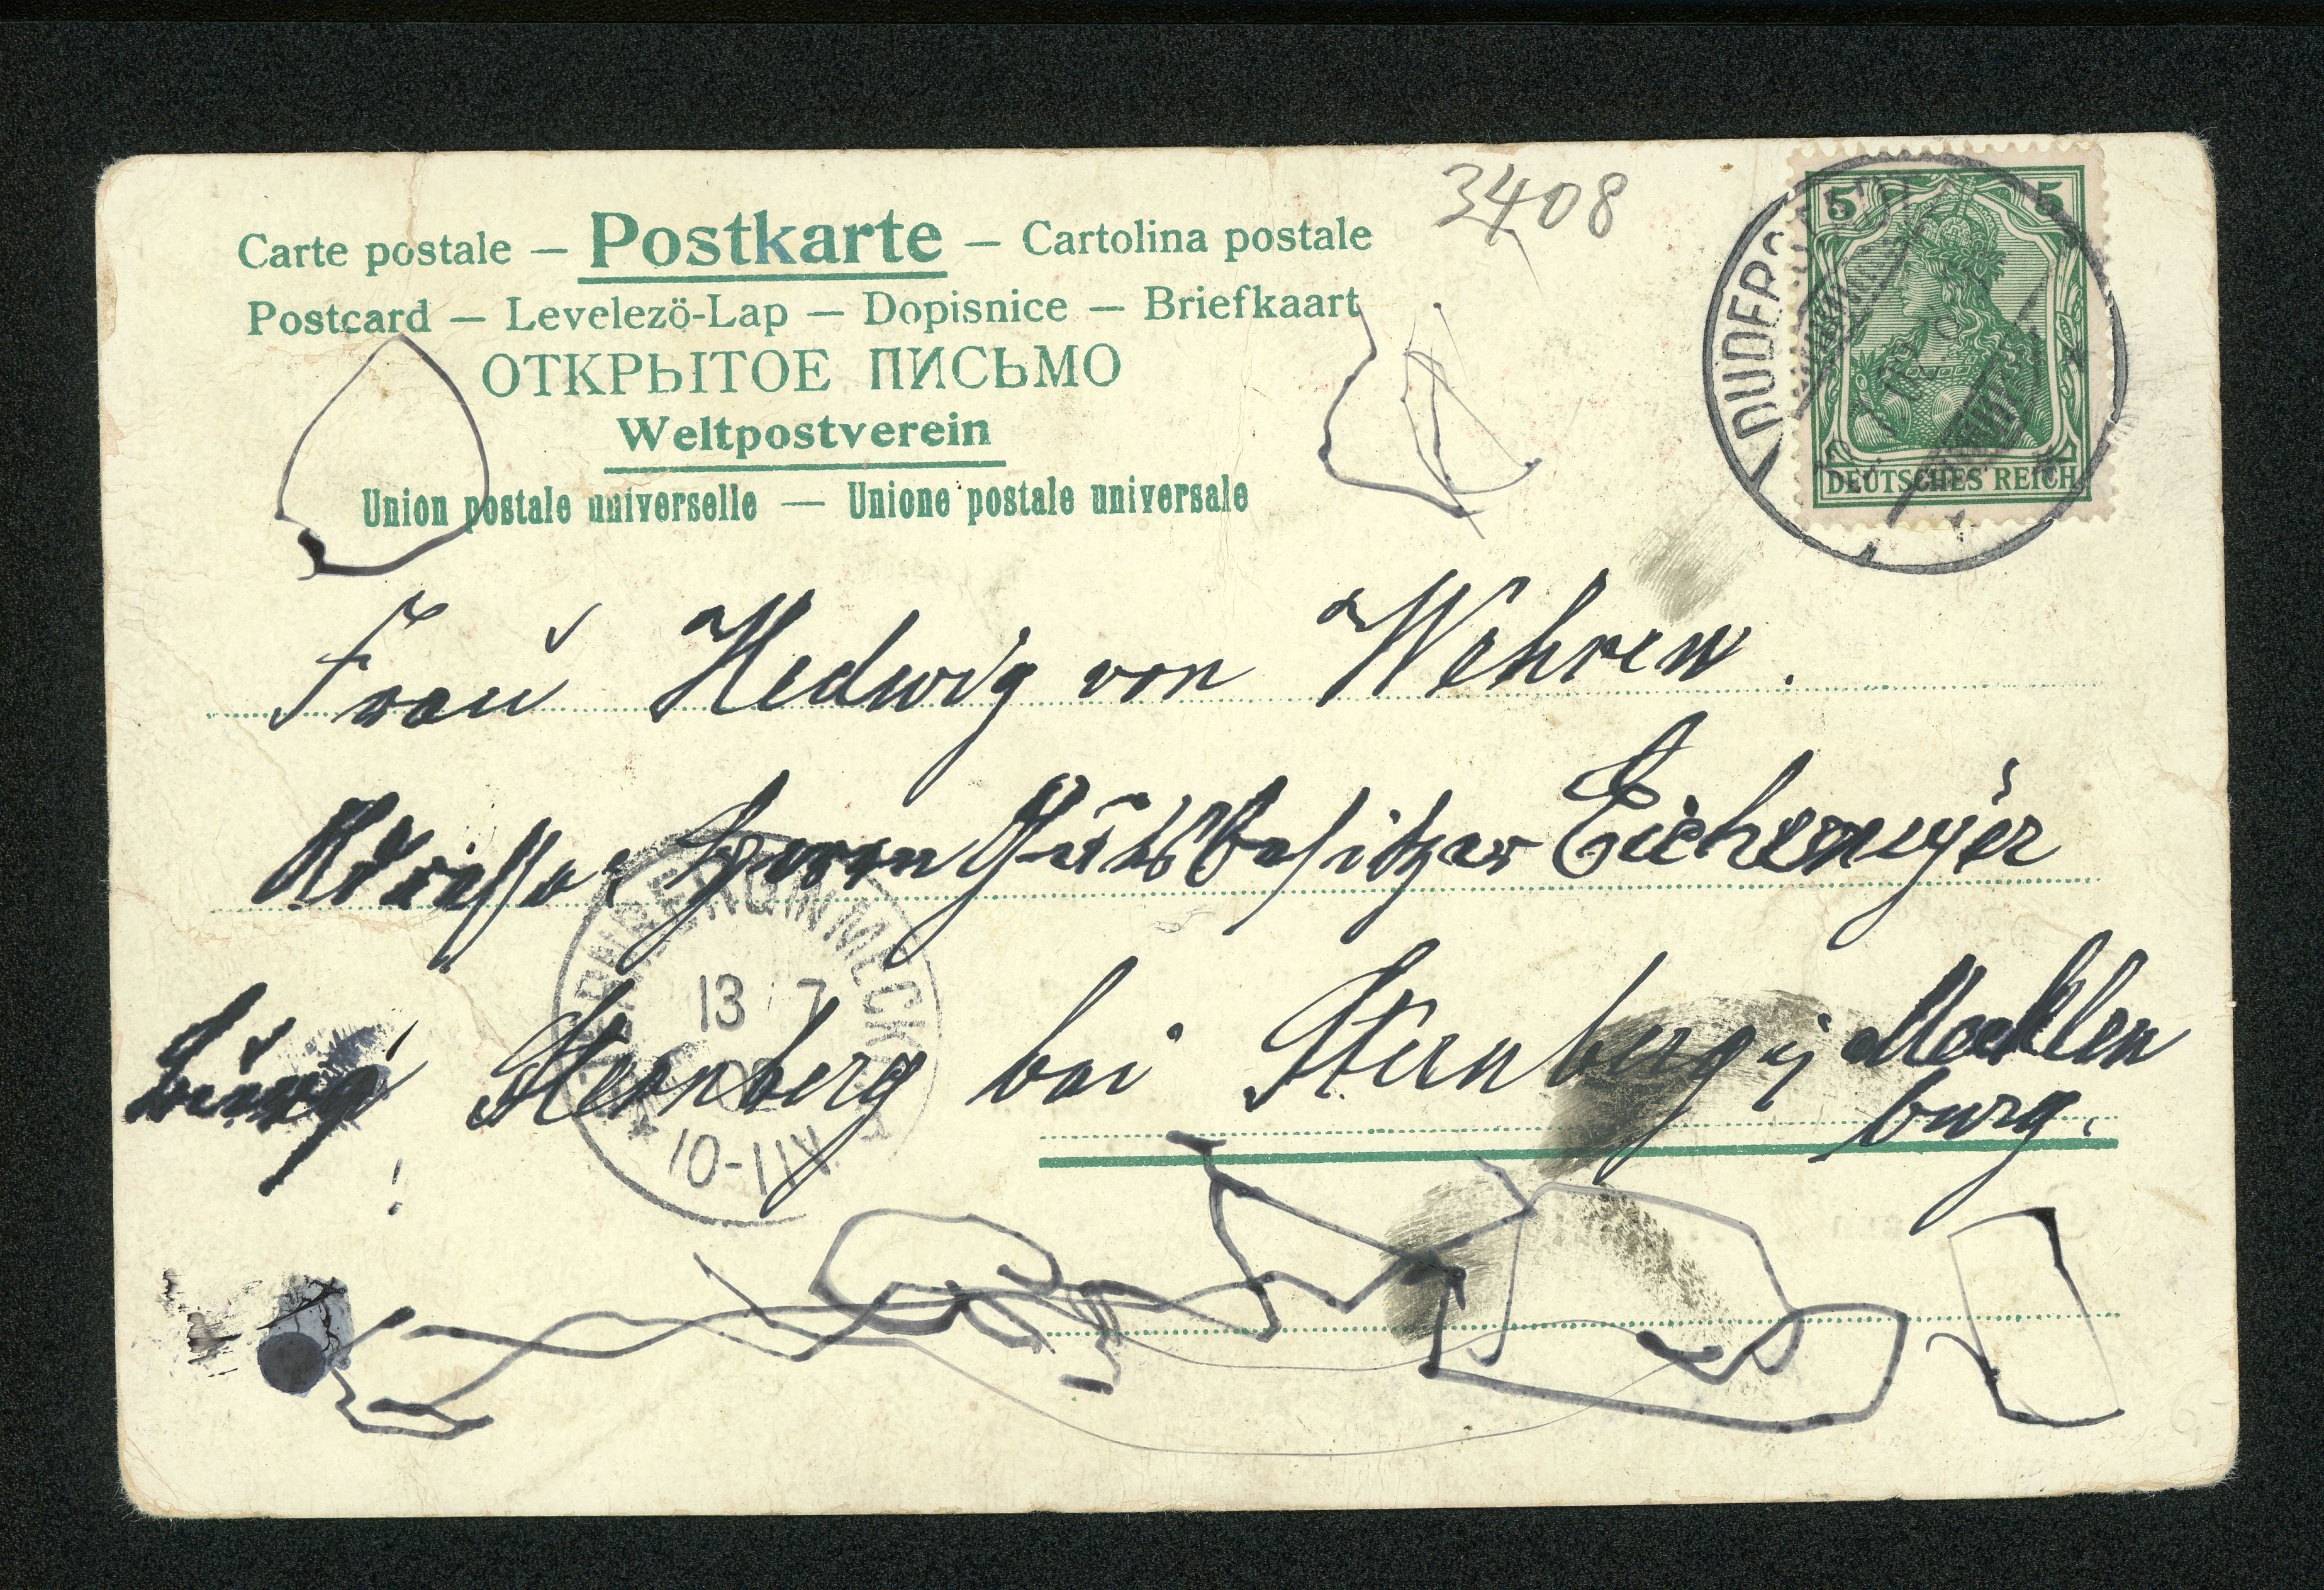 3408
Carte postale — Postkarte — Cartolina postale
Postcard — Levelezö-Lap — Dopisnice — Briefkaart
ОТКРЫТОЕ ПИСЬМО
Weltpostverein
Union postale universelle — Unione postale universale
5 5
DEUTSCHES REICH
DUDERS
Frau Hedwig von Wehren.
Adresse: Herrn Gutsbesitzer Eichemeyer
Sternberg bei Sternberg i Mecklen
burg.
STERNBERG IN MECKL
13 7
10-11V